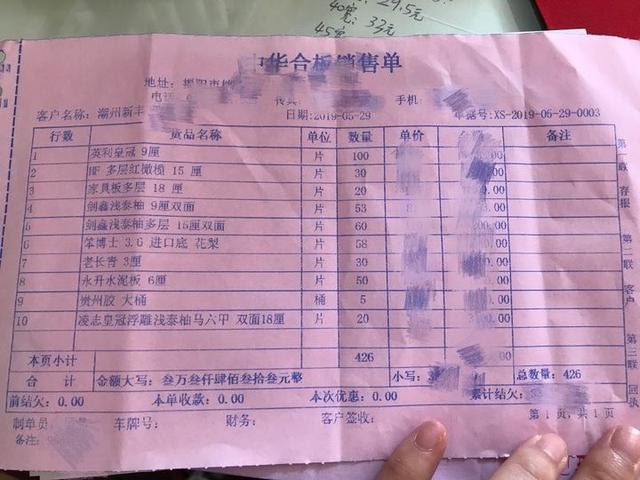 29.5元
40度
宽: 33元
45度
华合板销售单
地址:
电话:
手机:
客户名称: 潮州新丰
日期:2019-05-29
单据号:XS-2019-05-29-0003
行数 货品名称 单位 数量 单价 金额 备注
1 英利皇冠 9厘 片 100
2 HF 多层红橄榄 15 厘 片 30
3 家具板多层 18 厘 片 20
4 剑鑫浅泰柚 9厘双面 片 53
5 剑鑫浅泰柚多层 15厘双面 片 60
6 笨博士 3.6 进口底 花梨 片 58
7 老长青 3厘 片 30
8 永升水泥板 6厘 片 50
9 贵州胶 大桶 桶 5
10 凌志皇冠浮雕浅泰柚马六甲 双面18厘 片 20
本页小计 426
合 计 金额大写: 叁万叁仟肆佰叁拾叁元整 小写: 总数量: 426
前结欠: 0.00 本单收款: 0.00 本次优惠: 0.00 累计结欠:
制单员: 车牌号: 财务: 客户签收: 第 1 页, 共 1 页
备注:
第一联 存根 第二联 客户 第三联 回执